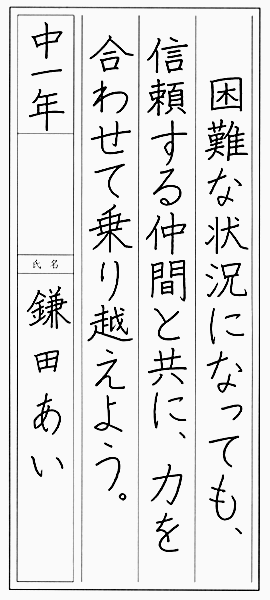 困難な状況になっても、
信頼する仲間と共に、力を
合わせて乗り越えよう。
中一年
氏名
鎌田あい